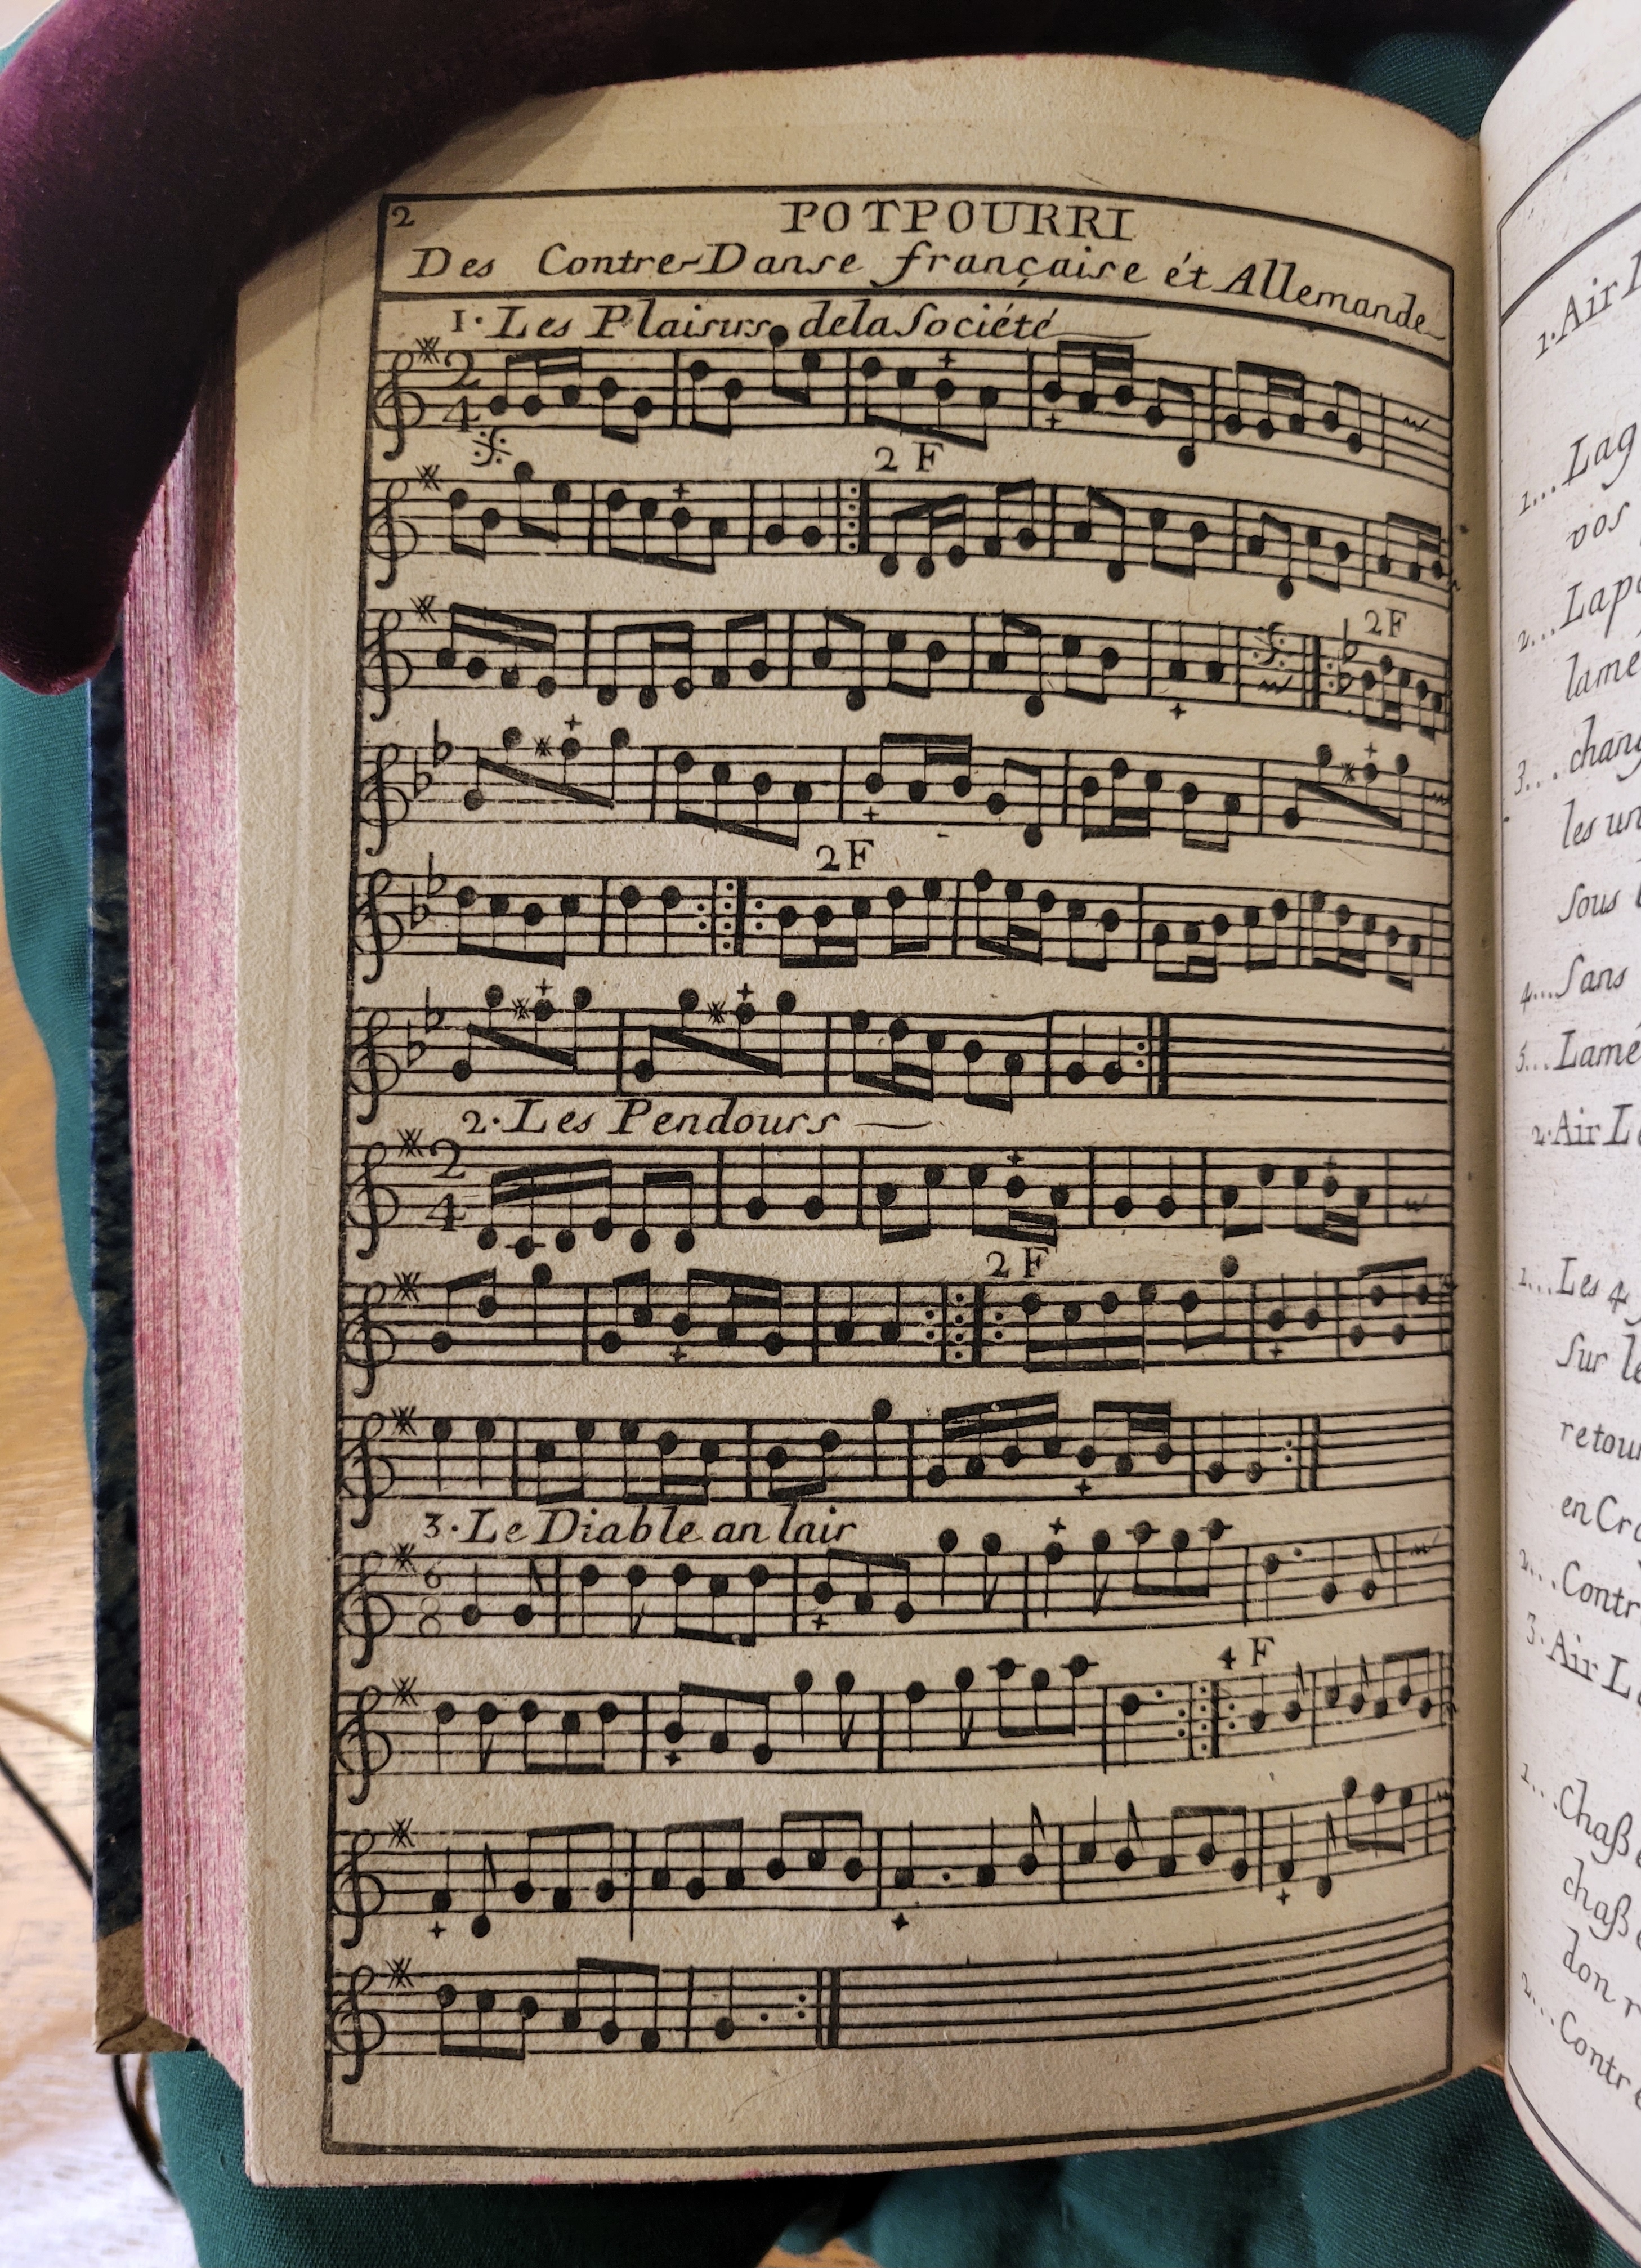 2
POTPOURRI
Des Contre-Danse française ét Allemande
1. Les Plaisirs dela Société
2 4
2 F
2F
2F
2. Les Pendours
2 4
2 F
3. Le Diable an lair
6 8
4 F
1. Air
1... Lag
vos
2...
lamé
3...
les un
sous
4... Sans
5... Lamé
2. Air L
1... Les 4
sur le
retou
en Cr
2... Contr
3. Air L
1... Chaß
chaß
don r
2... Contr